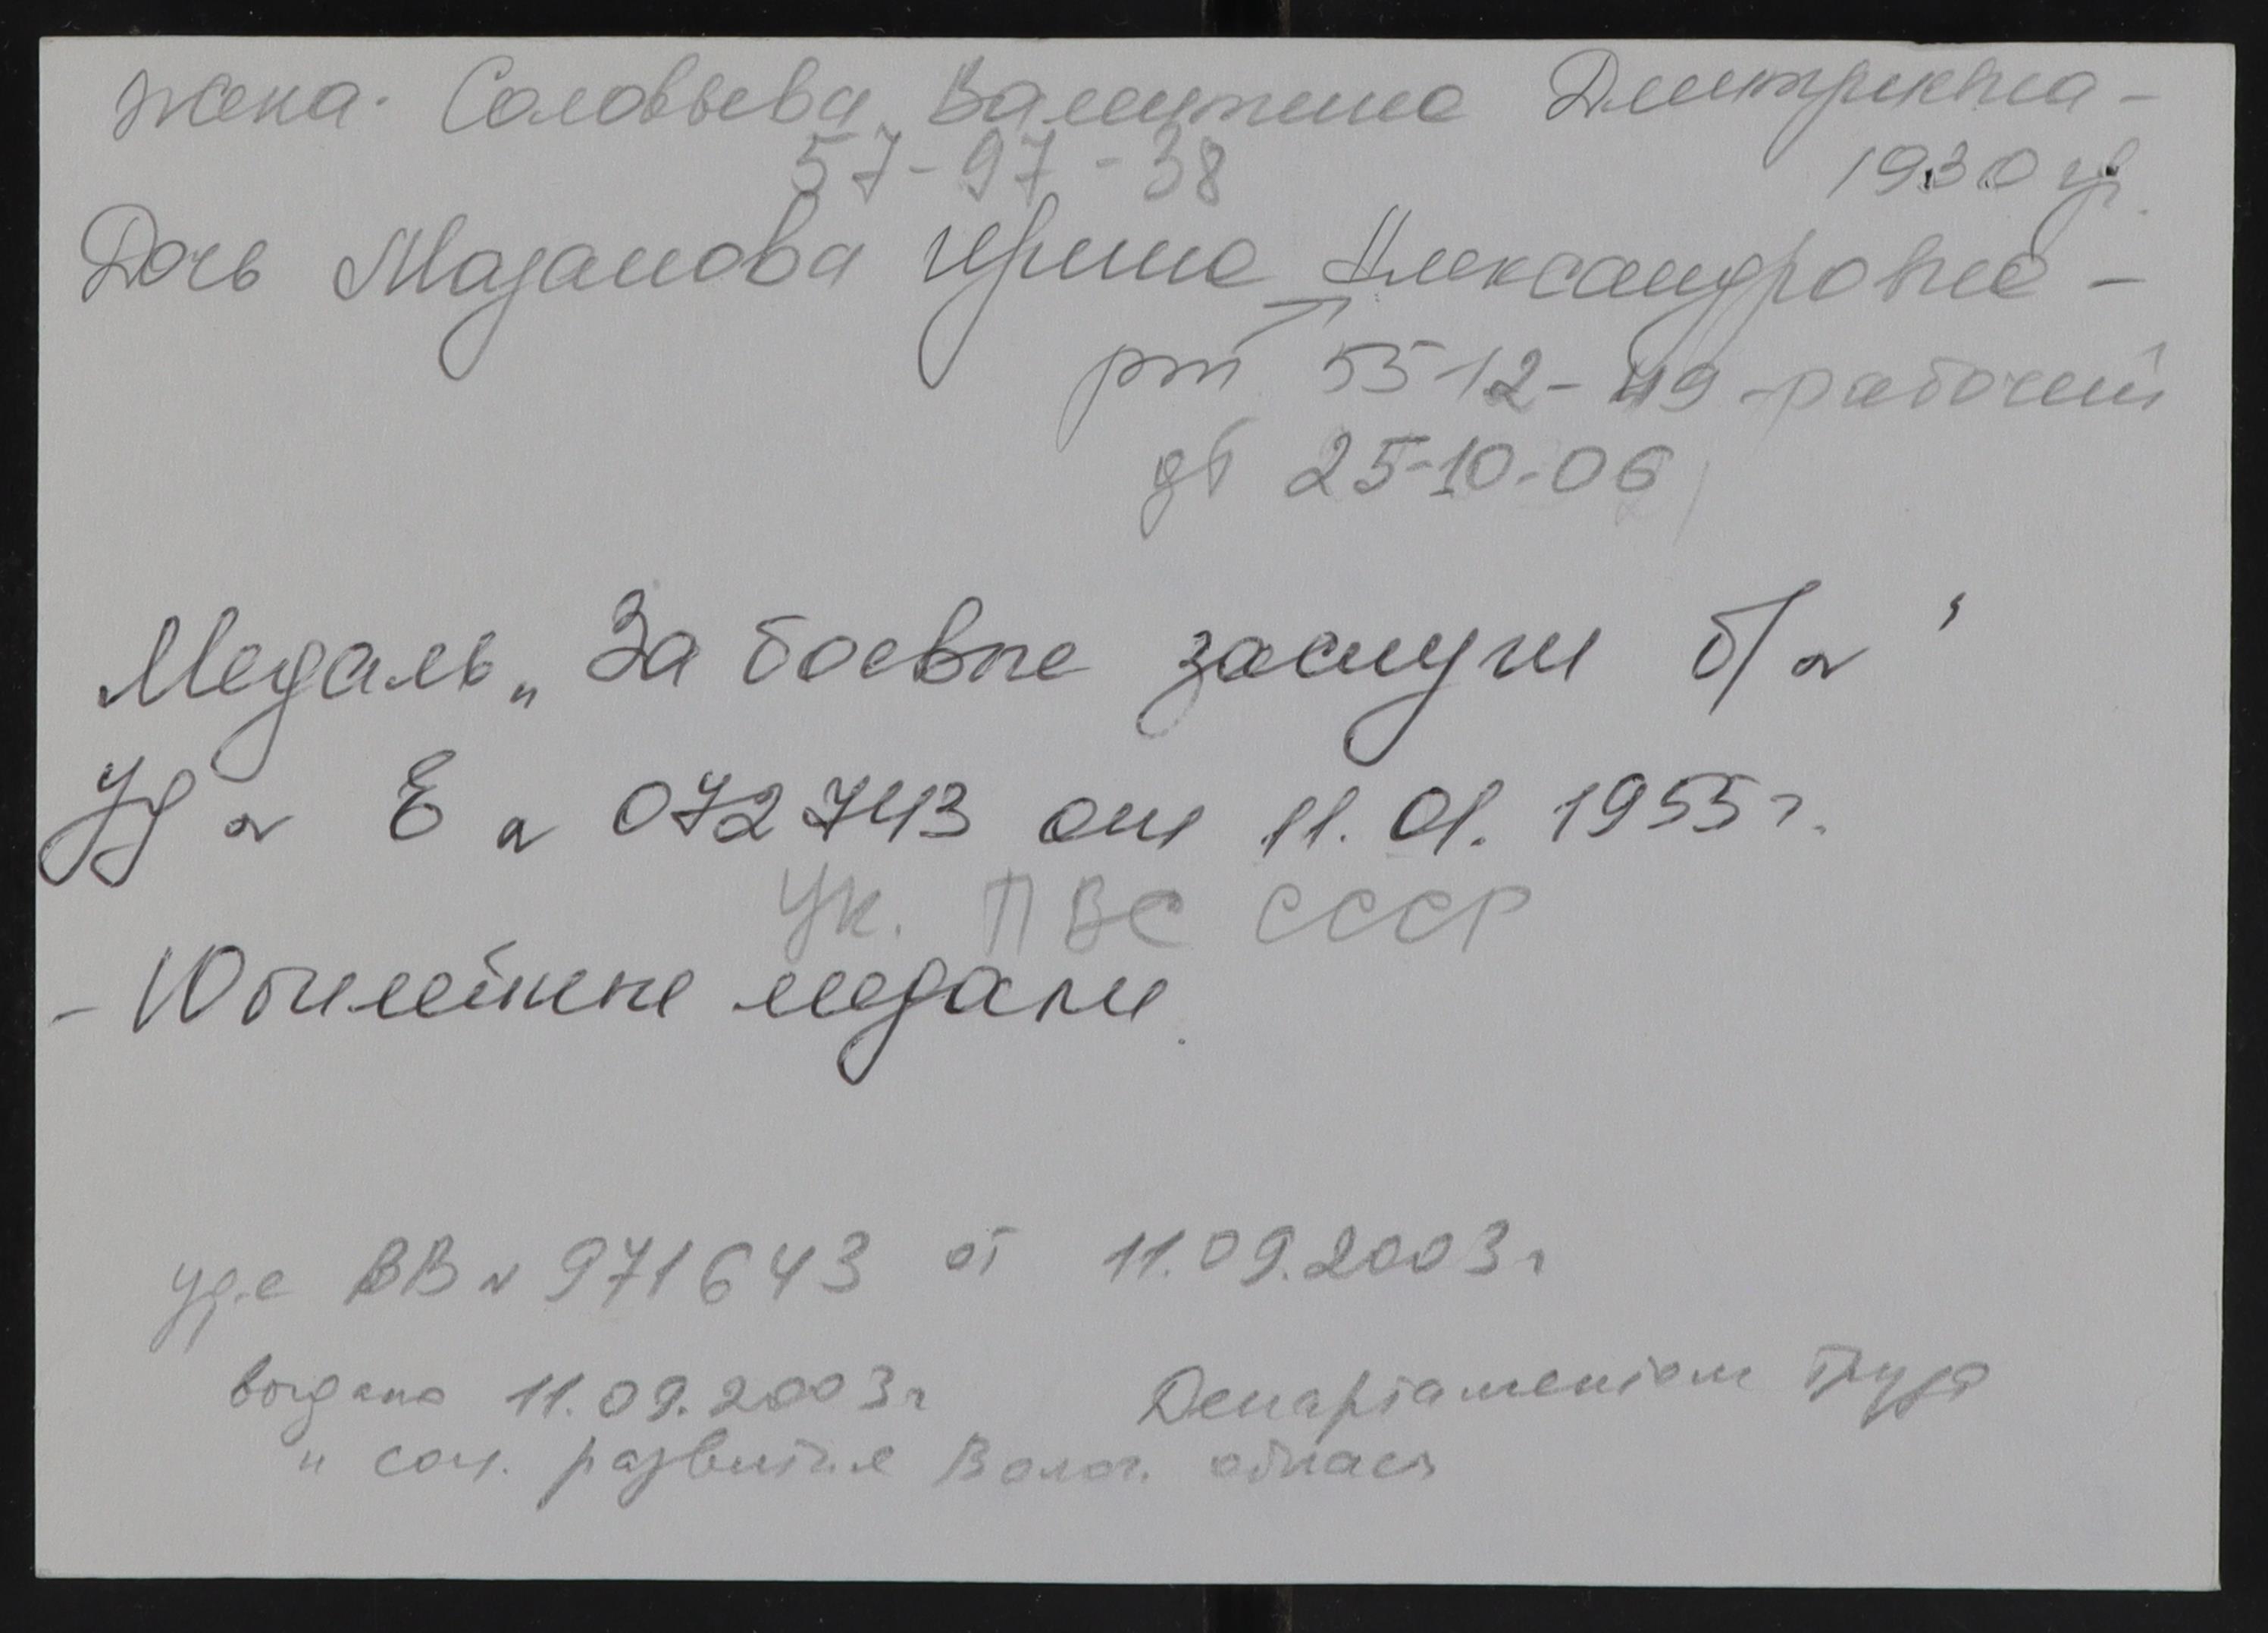 жена. Соловьева Валентина Дмитриевна -
57-97-38 1930 гр.
Дочь Мазанова Ирина Александровна -
рт 55-12-49 - рабочий
дб 25-10-06
Медаль „За боевые заслуги б/н"
Уд N Е N 072743 от 11.01.1955 г.
Ук. ПВС СССР
- Юбилейные медали.
уд-е ВВ N 971643 от 11.09.2003 г
выдано 11.09.2003 г Департаментом труда
и соц. развития Волог. област